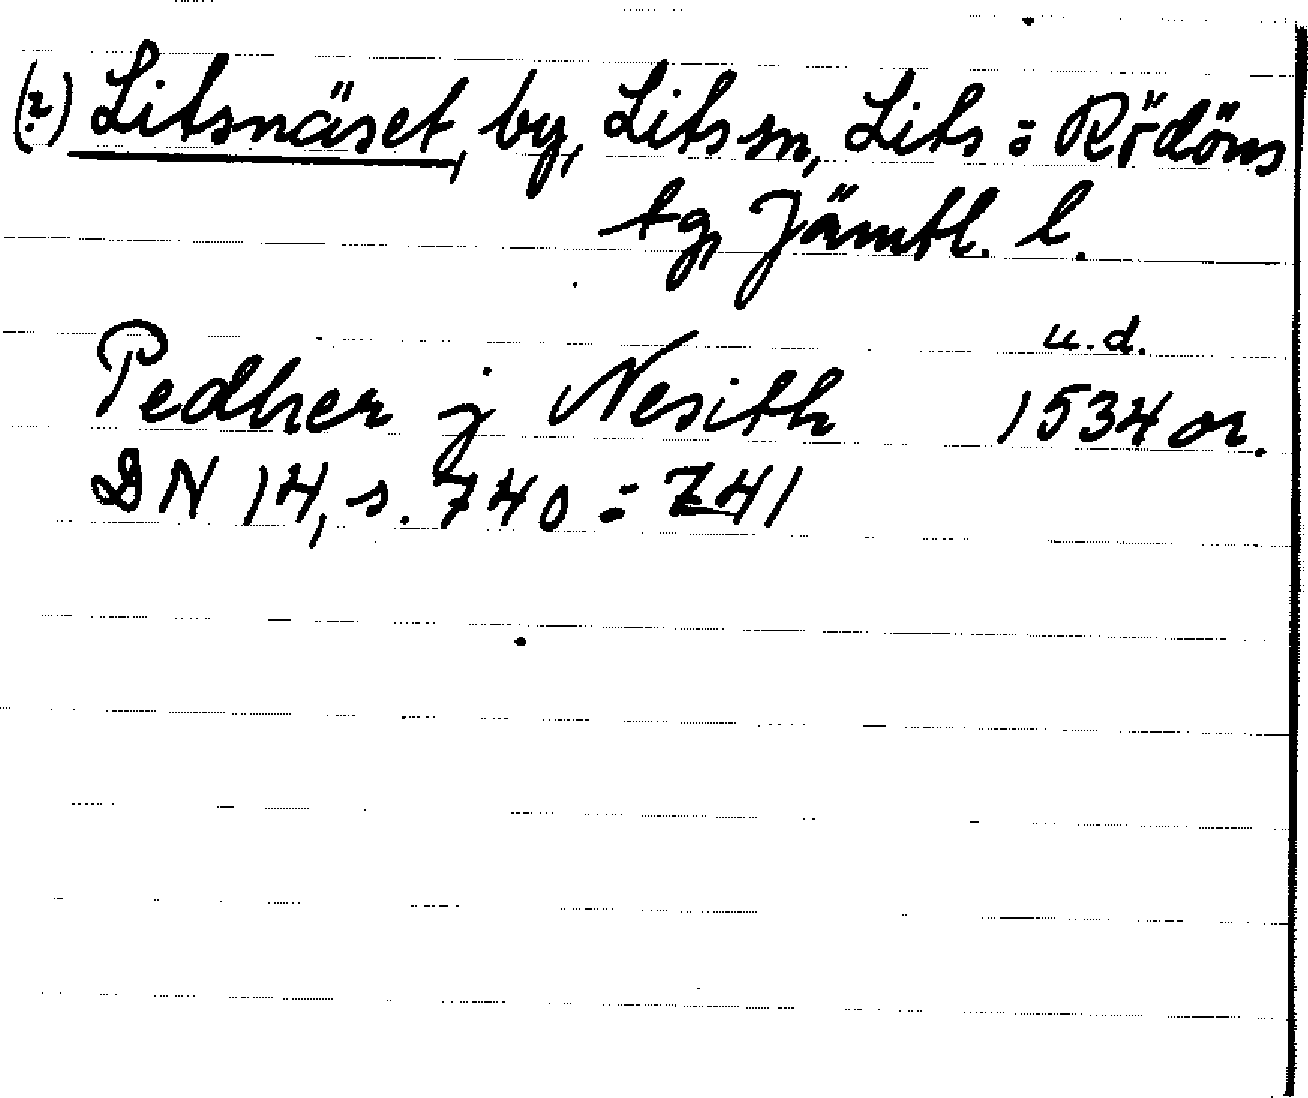 (?) Litsnäset, by, Lits sn, Lits = Rödöns
tg, Jämtl. l.
u.d.
Pedher j Nesith 1534 or.
DN 14, s. 740 = 741